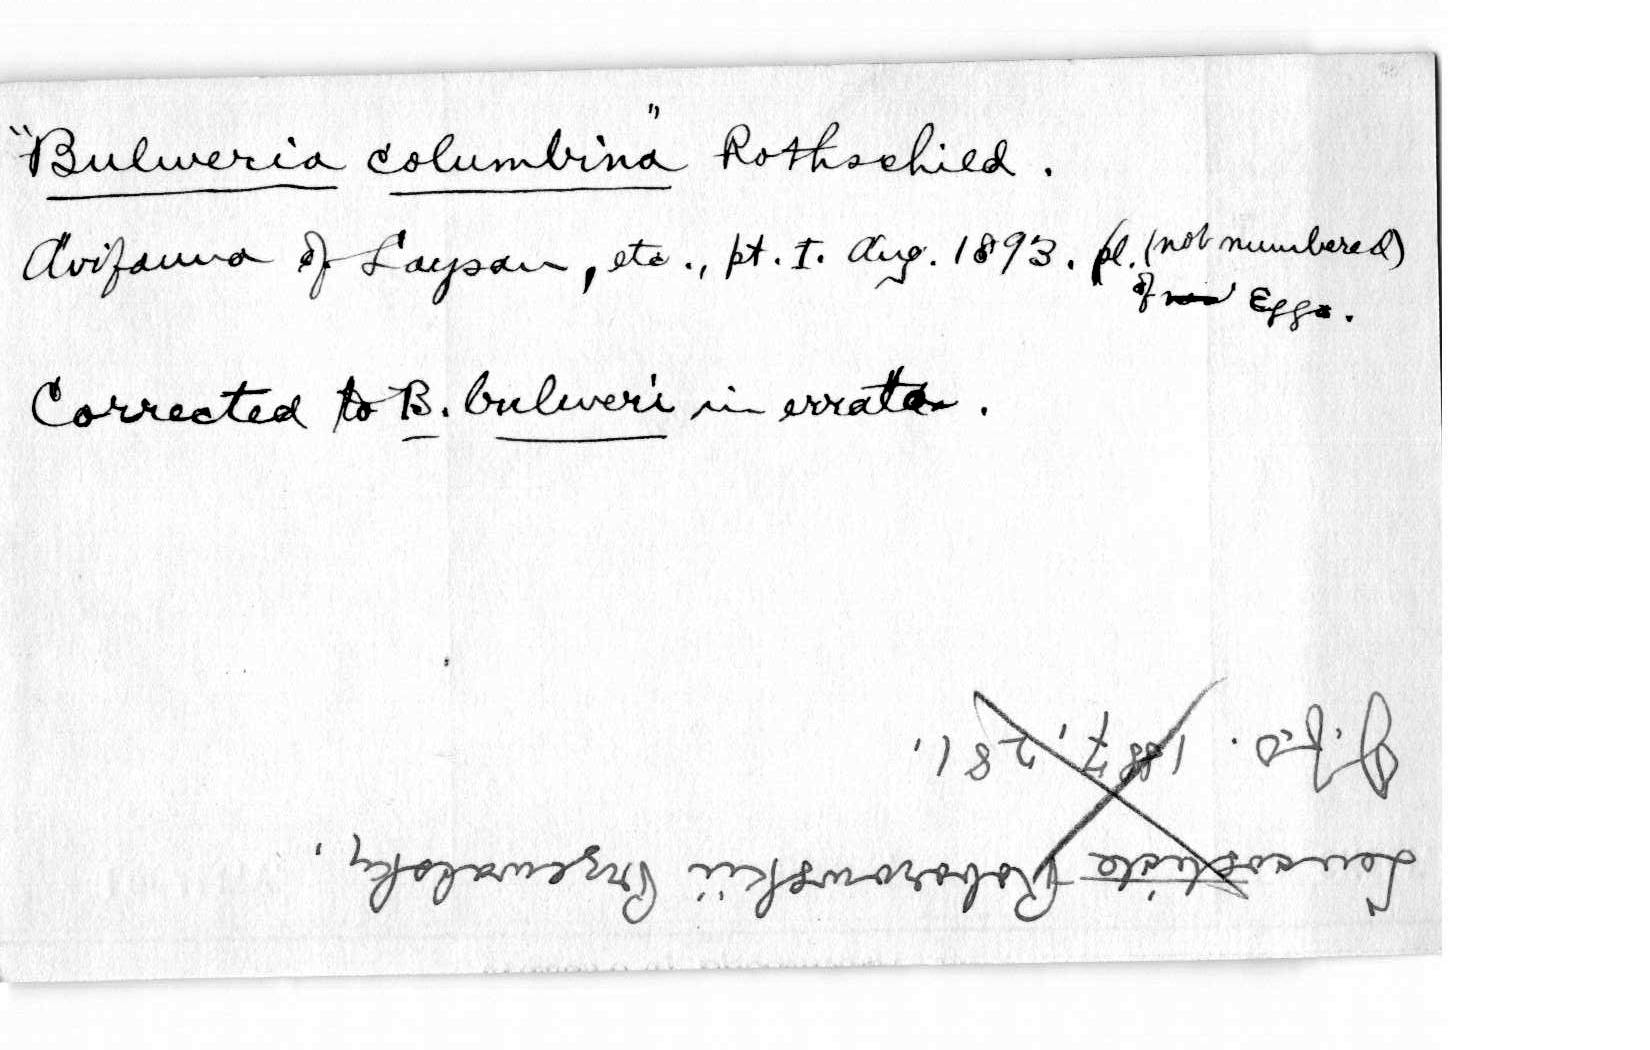 "Bulweria columbina" Rothschild.
Avifauna of Laysan, etc., pt. I. Aug. 1893. pl. (not numbered)
of Eggs.
Corrected to B. bulweri in errata.
Leucosticte Roborowskii Przewalsky,
J.f.O. 1887, 281.